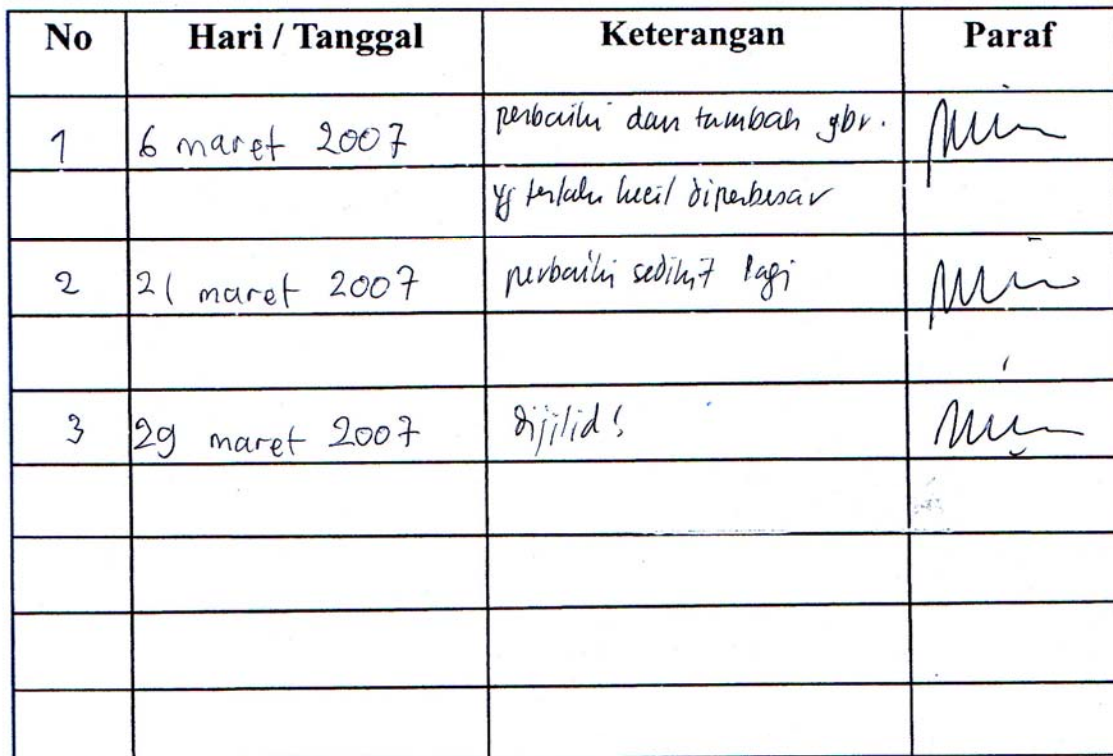 No Hari / Tanggal Keterangan Paraf
1 6 maret 2007 perbaiki dan tambah gbr.
yg terlalu kecil diperbesar
2 21 maret 2007 perbaiki sedikit lagi
3 29 maret 2007 dijilid!